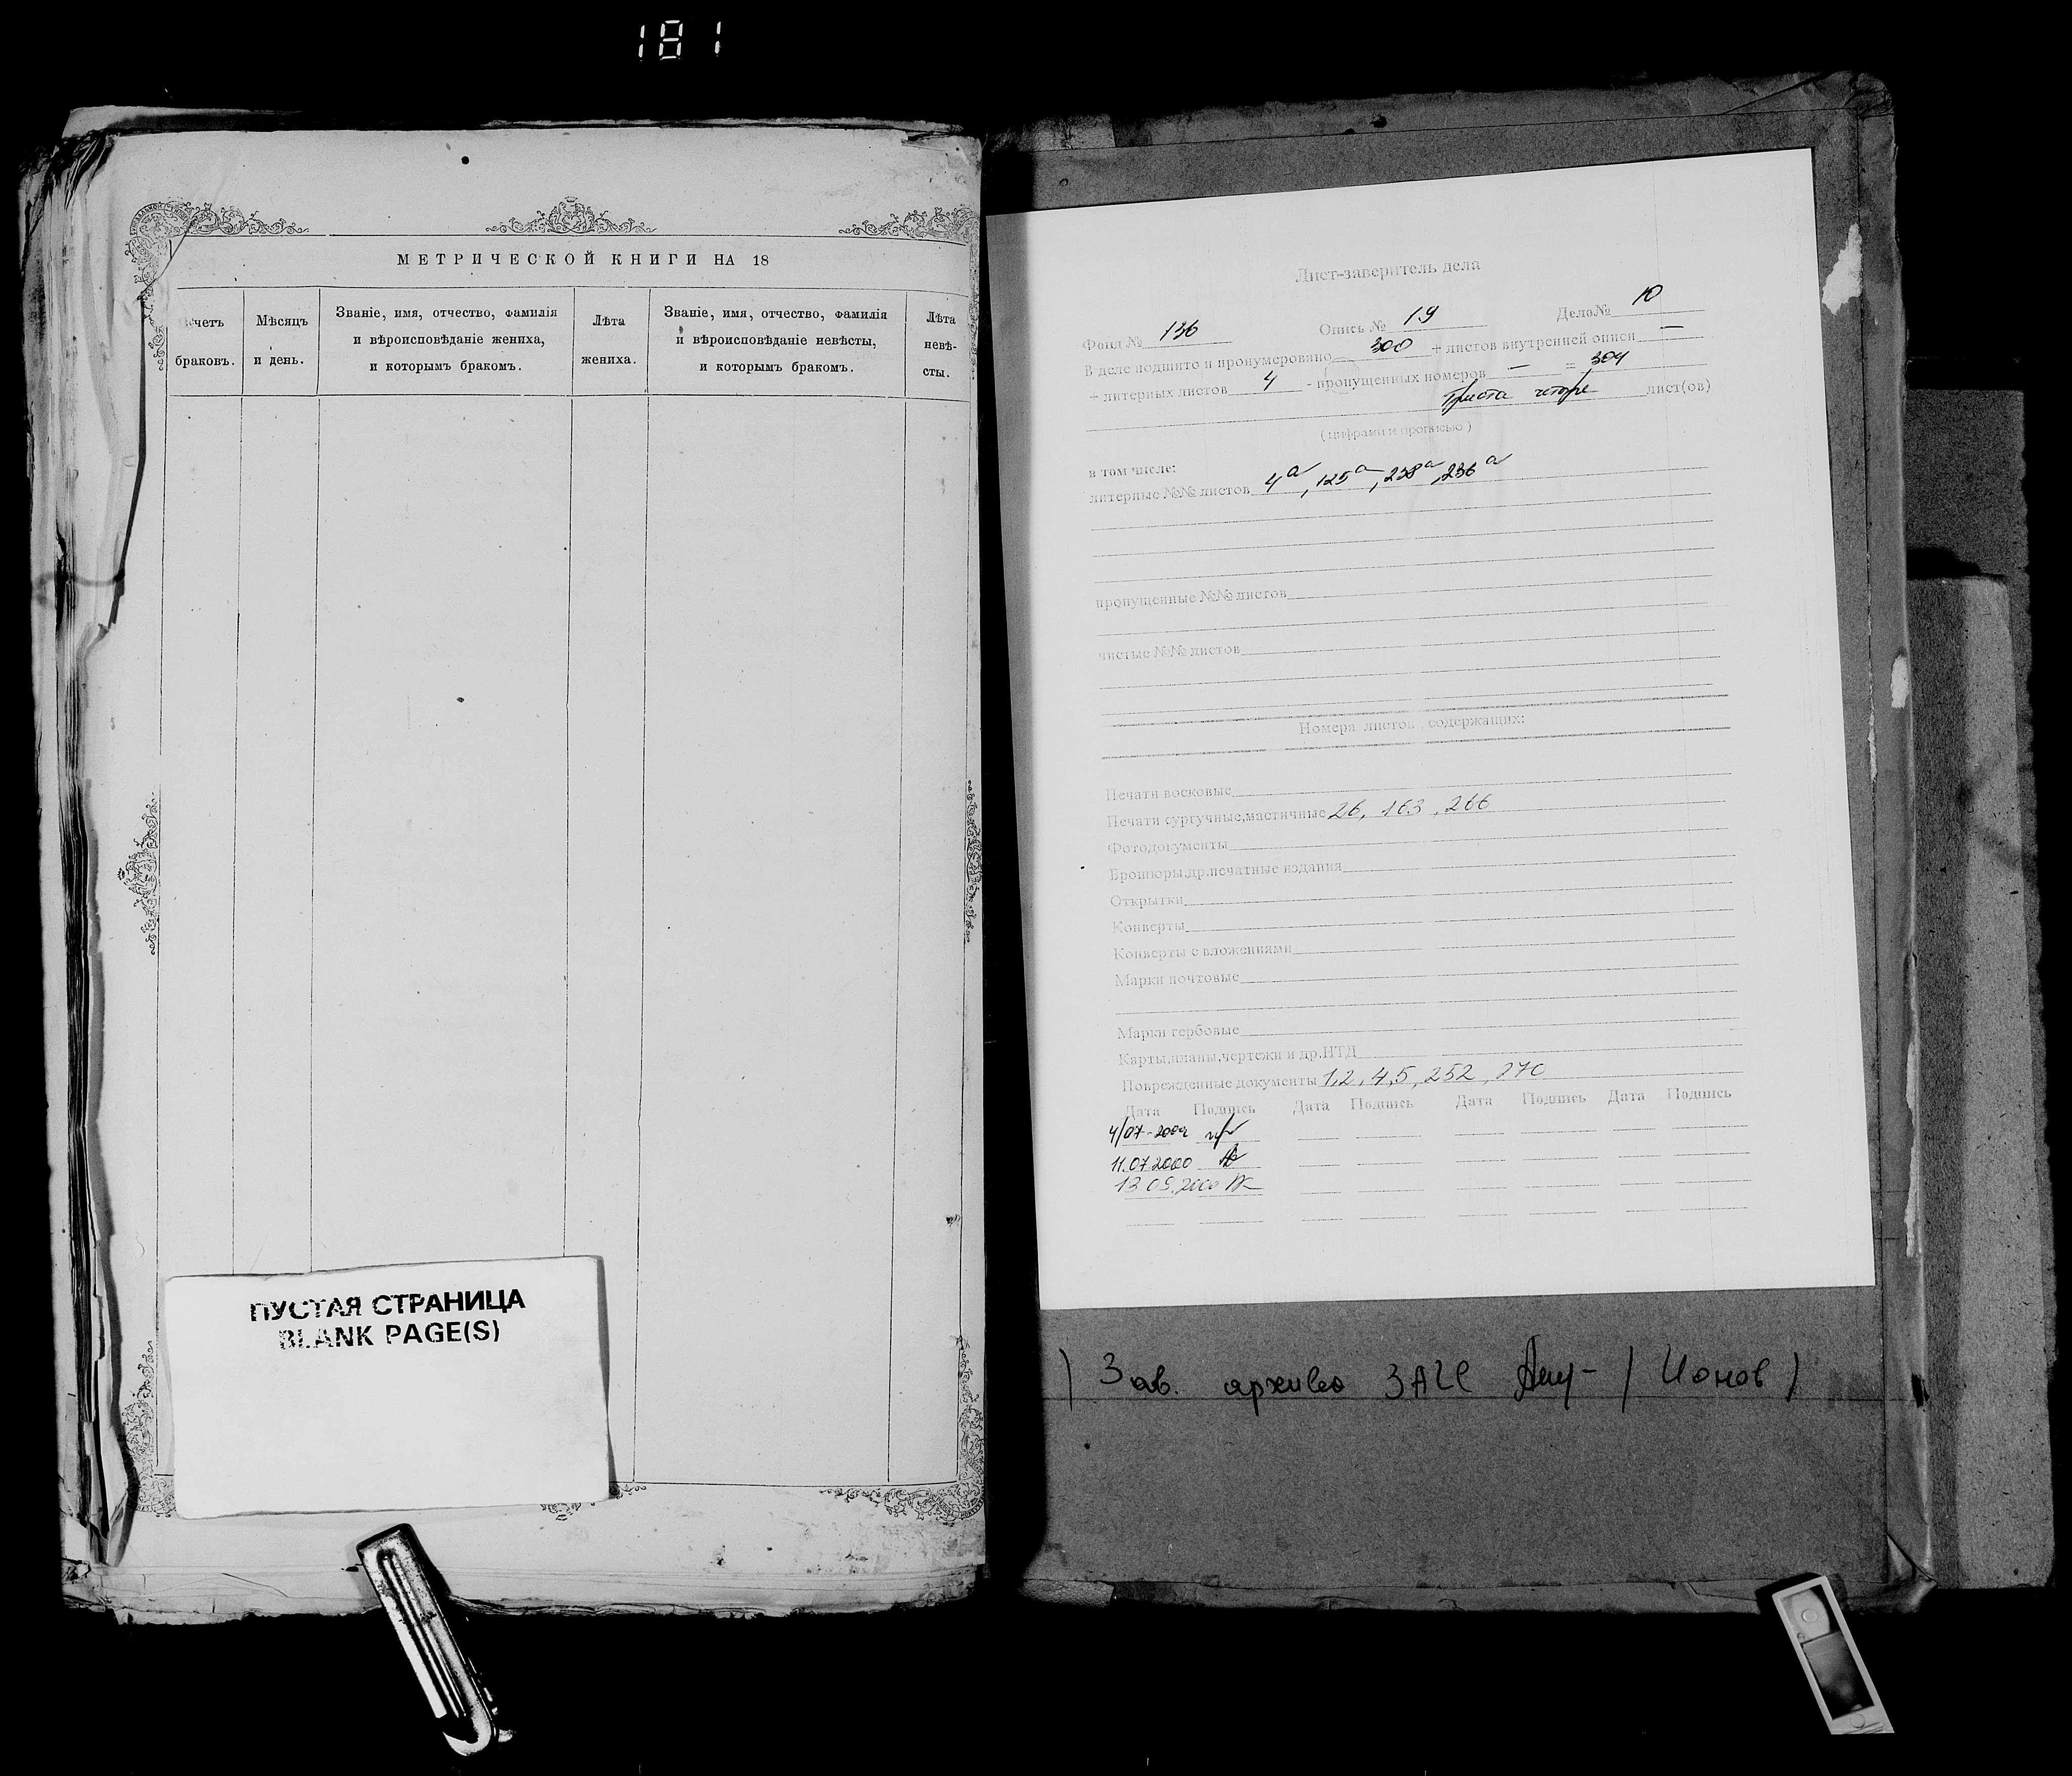 181
МЕТРИЧЕСКОЙ КНИГИ НА 18
четъ браковъ.
Мѣсяцъ и день.
Званіе, имя, отчество, фамилія
и вѣроисповѣданіе жениха,
и которымъ бракомъ.
Лѣта жениха.
Званіе, имя, отчество, фамилія
и вѣроисповѣданіе невѣсты,
и которымъ бракомъ.
Лѣта невѣ-
сты.
ПУСТАЯ СТРАНИЦА
BLANK PAGE(S)
Лист-заверитель дела
Фонд № 136 Опись № 19 Дело№ 10
В деле подшито и пронумеровано 300 + листов внутренней описи —
+ литерных листов 4 - пропущенных номеров — = 304
Триста четыре лист(ов)
(цифрами и прописью)
в том числе:
литерные №№ листов 4а, 125а, 238а, 236а
пропущенные №№ листов
чистые №№ листов
Номера листов , содержащих:
Печати восковые
Печати сургучные,мастичные 26, 163, 266
Фотодокументы
Брошюры,др.печатные издания
Открытки
Конверты
Конверты с вложениями
Марки почтовые
Марки гербовые
Карты,планы,чертежи и др.НТД
Поврежденные документы 1,2, 4,5, 252, 270
Дата Подпись Дата Подпись Дата Подпись Дата Подпись
11.07 2000
13 09.2000
) Зав. архива ЗАГС / Ионов )